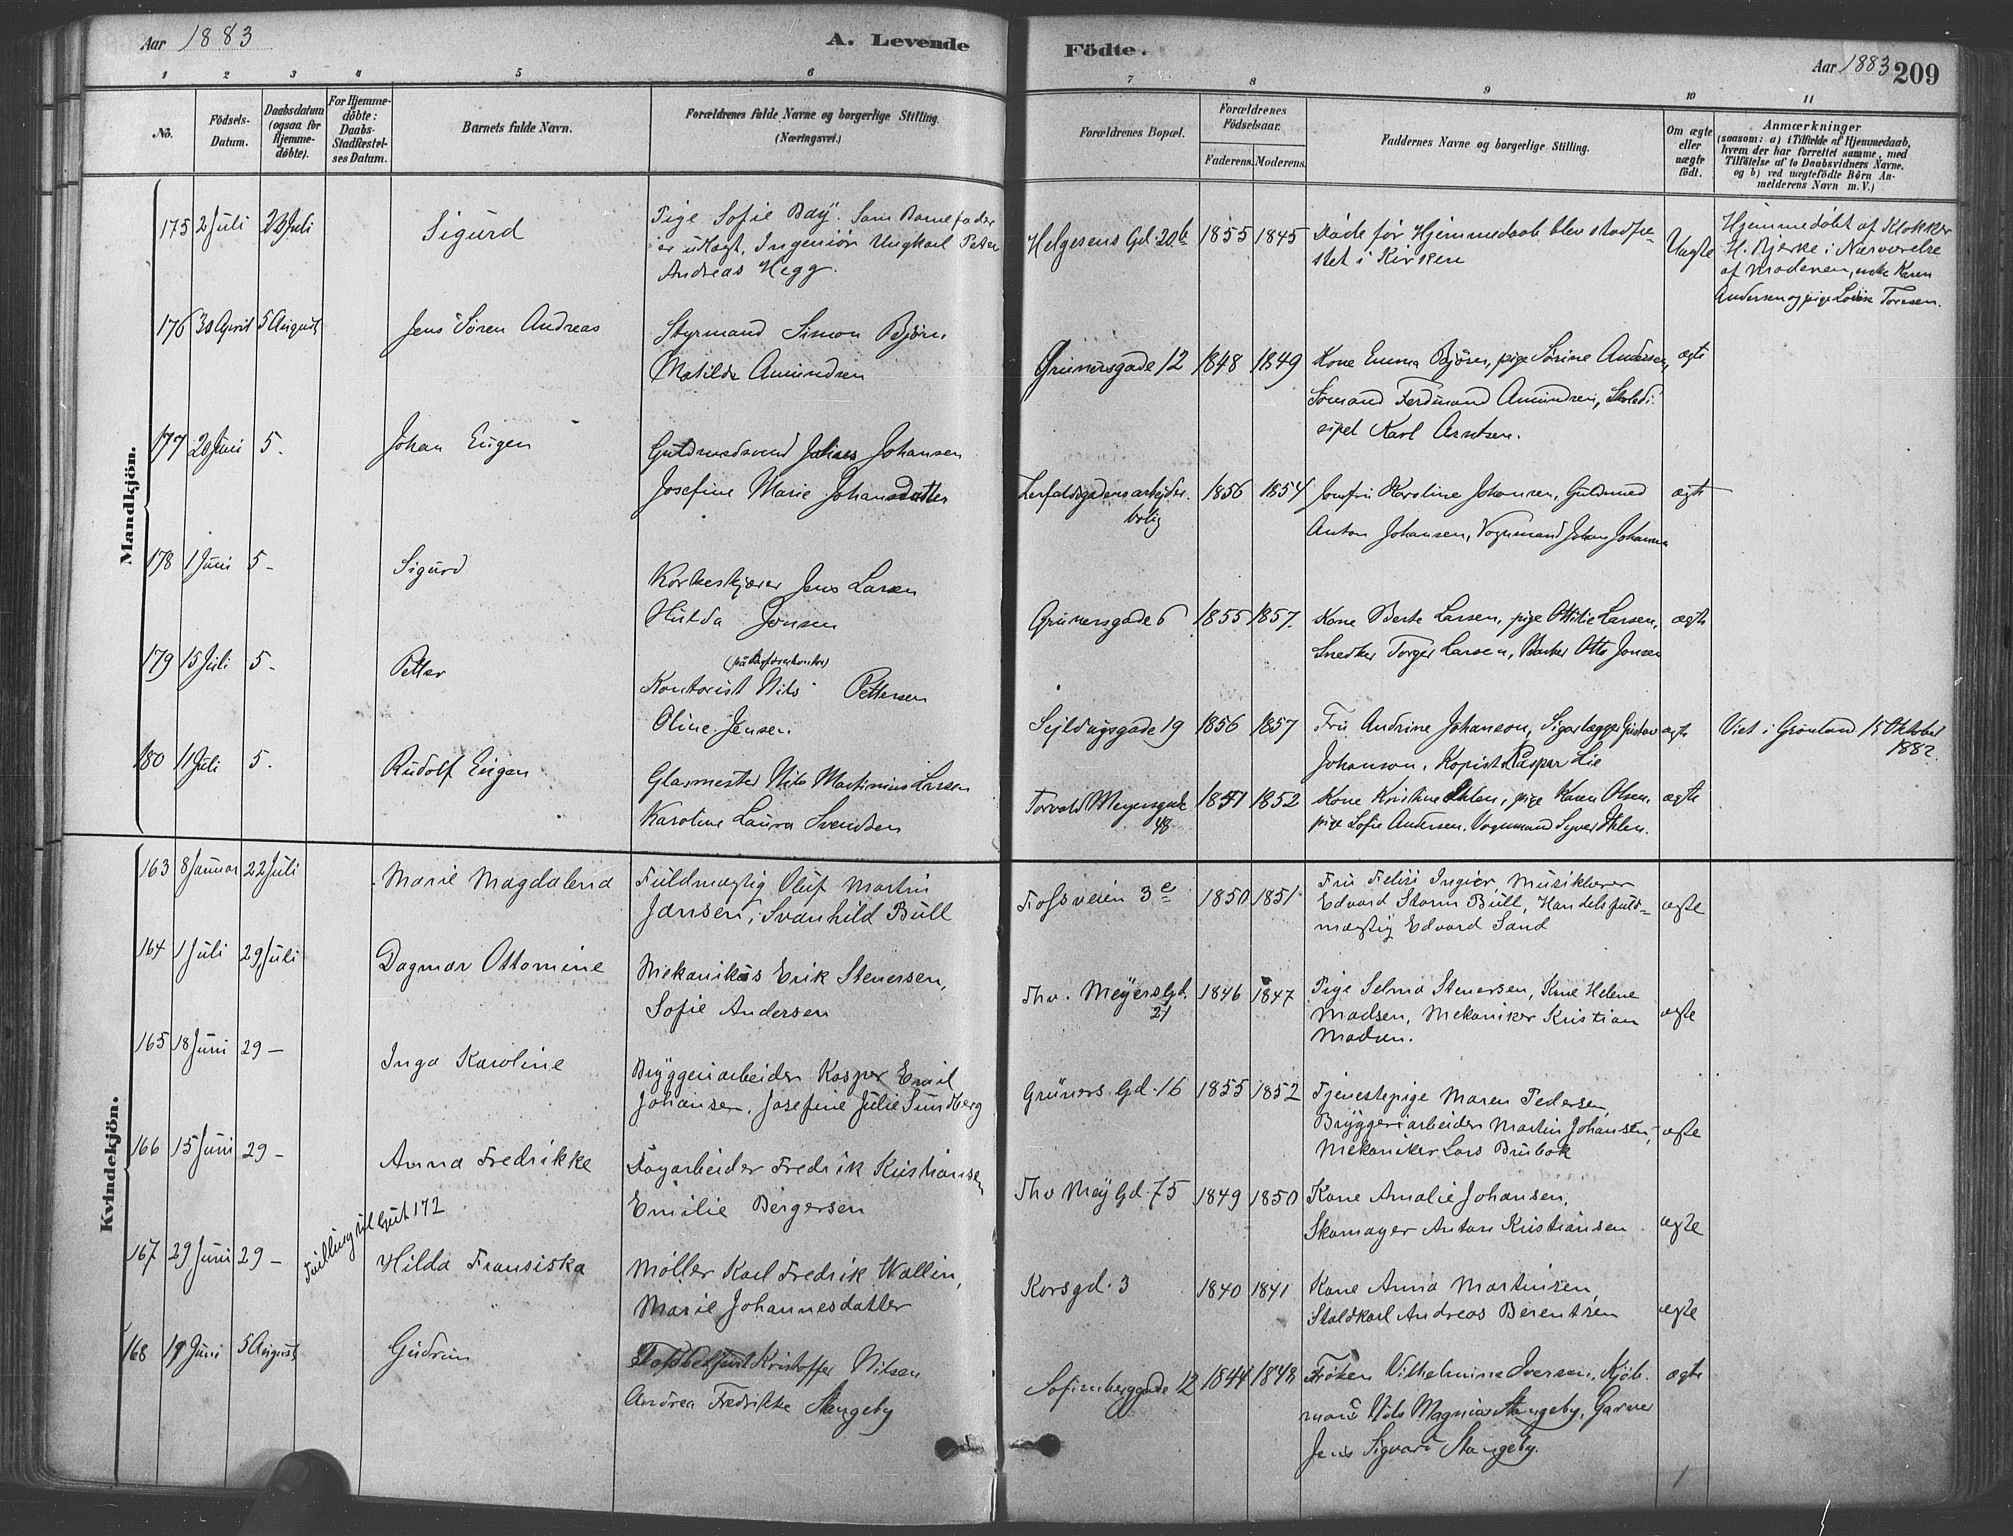 Aar 1883
A. Levende
Födte.
Aar 1883 209
1 2 3 4 5 6 7 8 9 10 11
No.
Födsels-Datum.
Daabsdatum (ogsaa for Hjemmedöbte).
For Hjemmedöbte: Daabs-Stadfæstelses Datum.
Barnets fulde Navn.
Forældrenes fulde Navne og borgerlige Stilling. (Næringsvei.)
Forældrenes Bopæl.
Forældrenes Födselsaar.
Faderens. Moderens.
Faddernes Navne og borgerlige Stilling.
Om ægte eller uægte födt.
Anmærkninger
(saasom: a) i Tilfælde af Hjemmedaab, hvem der har forrettet samme, med Tilföielse af to Daabsvidners Navne, og b) ved uægtefödte Börn Anmelderens Navn m. V.)
Mandkjön.
175 2 Juli 22 Juli Sigurd
Pige Sofie Bay. Som Barnefader
er udlagt, Ingeniör Ungkarl Peter
Andreas Hegg.
Helgesens Gd. 20b 1855 1845
Döde för Hjemmedaab blev stadfæ-
stet i Kirken
Uægte
Hjemmedöbt af Klokker
H. Bjerke i Nærværelse
af Moderen, enke Karen
Andersen og pige Lovise Toresen.
176 30 April 5 August Jens Sören Andreas
Styrmand Simon Björn
Matilde Amundsen
Grünersgade 12 1848 1849
Kone Emma Björn, pige Sörine Andersen,
Sömand Ferdinand Amundsen, Skoledi-
sipel Karl Arntsen.
ægte
177 20 Juni 5. Johan Eugen
Guldsmedsvend Johansen
Josefine Marie Johansdatter
arbejder-
bolig
1856 1854
Jomfru Karoline Johansen, Guldsmed
Anton Johansen, Vognmand Johan Johansen
ægte
178 1 Juni 5- Sigurd
Korkeskjærer Jens Larsen
Hulda Jonsen
Grünersgade 6 1855 1857.
Kone Berte Larsen, pige Ottilie Larsen,
Snedker Torger Larsen, Otto Jonsen
ægte
179 15 Juli 5- Petter
Kontorist Nils Pettersen
Oline Jensen.
Sejldugsgade 19 1856 1857
Fru Andrine Johanson, Sigarlægger Gustav
Johanson, Kopist Kaspar Lie
ægte
Viet i Grönland 15 Oktober
1882.
180 11 Juli 5. Rudolf Eugen
Glasmester Nils Martinius Larsen
Karoline Laura Svendsen
Torvald Meyersgade
48
1851 1852
Kone Kristine Ihlen, pige Karen Olsen,
pige Sofie Andersen, Vognmand Syver Ihlen.
ægte
Kvindekjön.
163 8 Januar 22 Juli Marie Magdalena
Fuldmægtig Oluf Martin
Jansen, Svanhild Bull
Fossveien 3c 1850 1851
Fru Ingier, Musiklærer
Edvard Storm Bull, Handelsfuld-
mægtig Edvard Sand
ægte
164 1 Juli 29 Juli Dagmar Ottomine
Mekanikus Erik Stenersen,
Sofie Andersen
Thv. Meyers Gd.
21
1846 1847
Pige Selma Stenersen, Kone Helene
Madsen, Mekaniker Kristian
Madsen.
ægte
165 18 Juni 29 - Inga Karoline
Bryggeriarbeider Kasper Emil
Johansen, Josefine Julie Sundberg
Grüners Gd. 16 1855 1852
Tjenestepige Maren Pedersen,
Bryggeriarbeider Martin Johansen,
Mekaniker Lars Brubak
ægte
166 15 Juni 29 - Anna Fredrikke
Dagarbeider Fredrik Kristiansen
Emilie Bergersen
Thv Mey Gd. 75 1849 1850
Kone Amalie Johansen,
Skomager Anton Kristiansen
ægte
167 29 Juni 29 - Tvilling til Gut 172 Hilda Fransiska
Möller Karl Fredrik Wallin,
Marie Johannesdatter
Korsgd. 3 1840 1841
Kone Anna Martinsen,
Staldkarl Andreas Berentsen
ægte
168 19 Juni 5 August Gudrun
Kristoffer Nilsen
Andrea Fredrikke Stangeby
Sofienberggade 12 1844 1848
Fröken Vilhelmine Iversen, Kjöb-
mand Nils Magnus Stangeby, Garver
Jens Sigvard Stangeby.
ægte